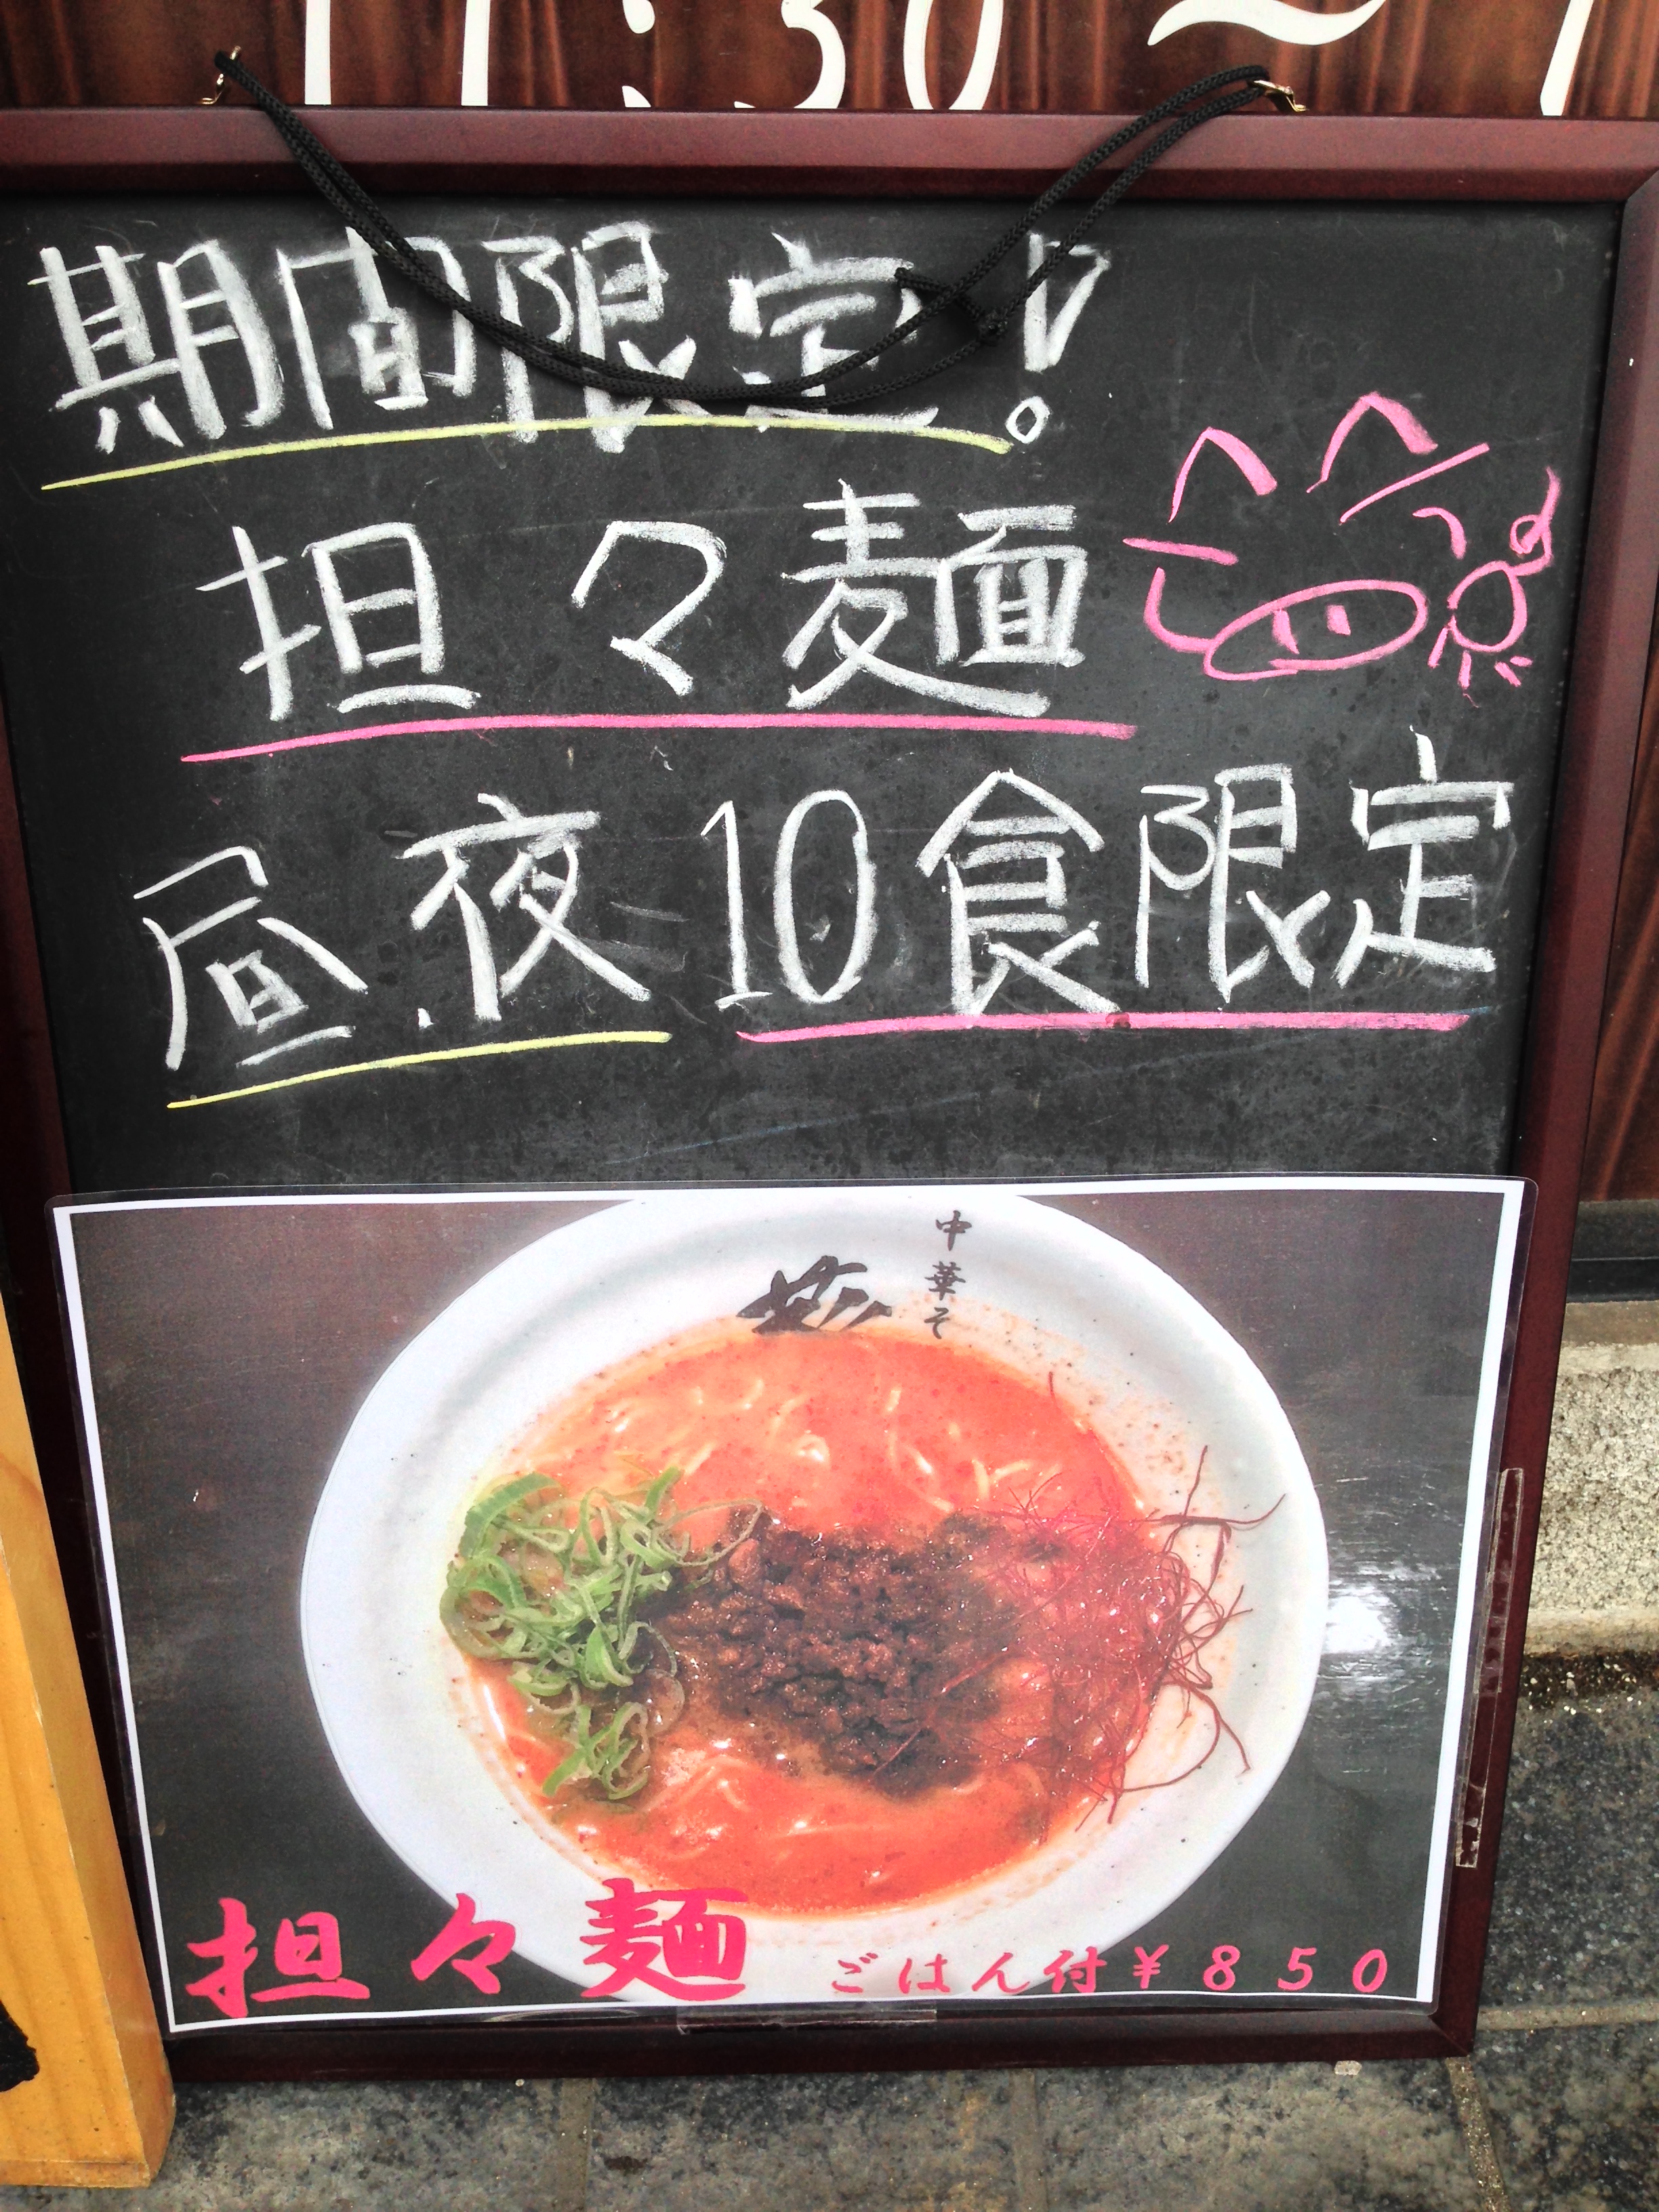 11:30～1
期間限定!
担々麺
昼.夜10食限定
中華そ
担々麺 ごはん付¥850